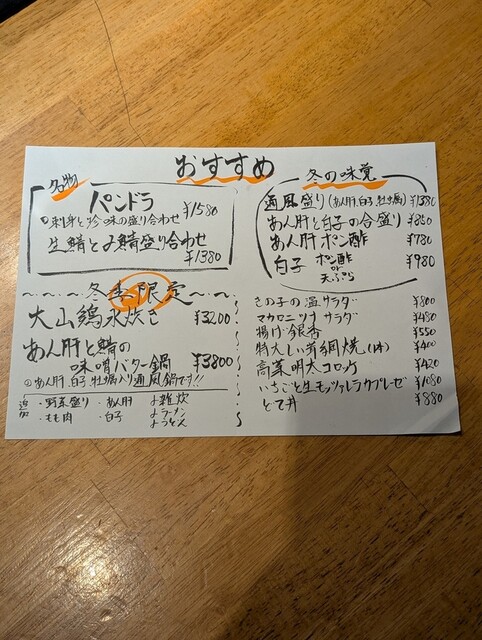 おすすめ
名物
パンドラ ¥1580
刺身と珍味の盛り合わせ
生鯖と〆鯖盛り合わせ
¥1380
冬季限定
大山鶏水炊き ¥3200
あん肝と鯖の
味噌バター鍋 ¥3800
あん肝 白子 牡蠣入り通風鍋です!!
追加
・野菜盛り ・あん肝 〆雑炊
・もも肉 ・白子 〆ラーメン
〆うどん
冬の味覚
通風盛り(あん肝 白子 牡蠣) ¥1380
あん肝と白子の合盛り ¥850
あん肝ポン酢 ¥780
白子 ポン酢 or 天ぷら ¥980
きの子の温サラダ ¥800
マカロニツナサラダ ¥480
揚げ銀杏 ¥550
特大しいたけ網焼(1本) ¥400
高菜明太コロッケ ¥420
いちごと生モッツァレラカプレーゼ ¥1080
とて丼 ¥880